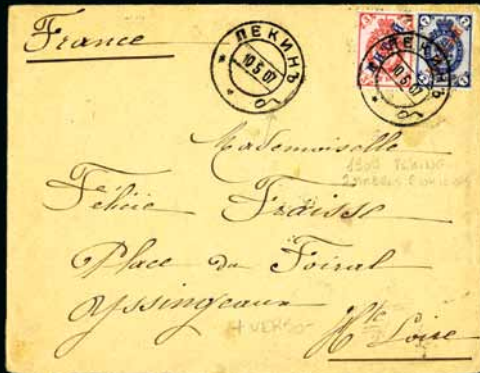 France
ПЕКИНЪ
10 5 07
ПЕКИНЪ
10 5 07
Mademoiselle
Félicie Fraisse
Place du Foiral
Yssingeaux
+ VERSO
Hte Loire